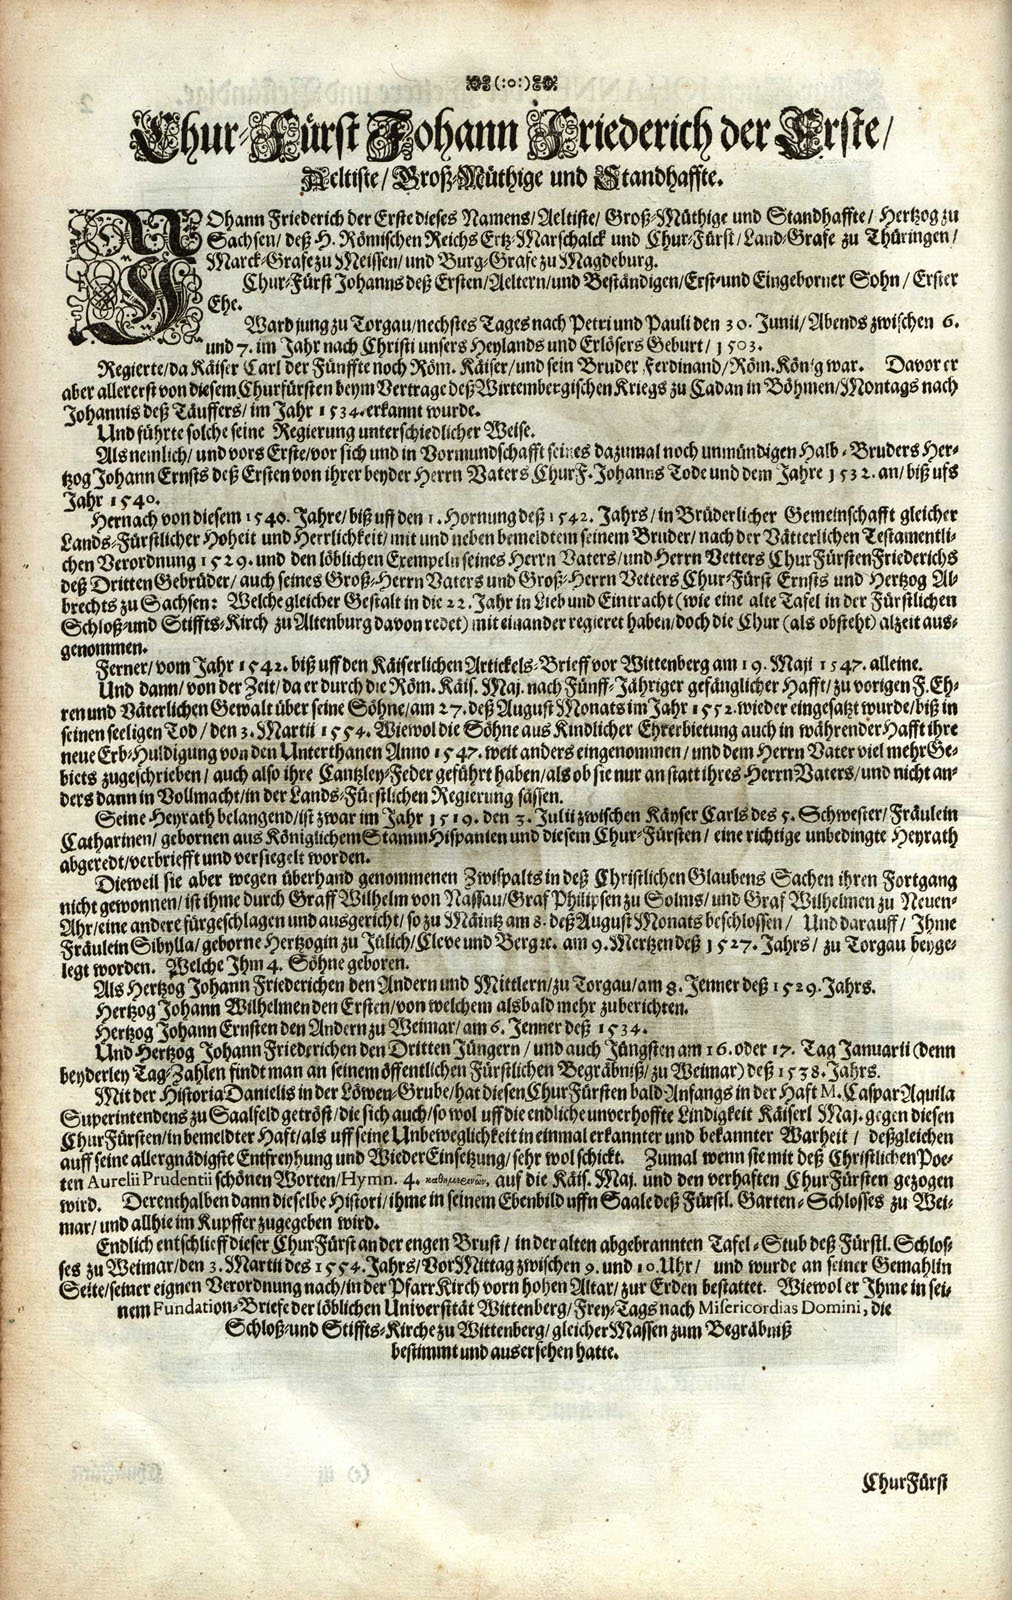 (:o:)
Chur-Fürst Johann Friederich der Erste/
Aeltiste/ Groß-Müthige und Standhaffte.
JOhann Friederich der Erste dieses Namens/ Aeltiste/ Groß-Müthige und Standhaffte/ Hertzog zu
Sachsen/ deß H. Römischen Reichs Ertz-Marschalck und Chur-Fürst/ Land-Grafe zu Thüringen/
Marck-Grafe zu Meissen/ und Burg-Grafe zu Magdeburg.
Chur-Fürst Johanns deß Ersten/ Aeltern/ und Beständigen/ Erst-und Eingeborner Sohn/ Erster
Ehe.
Ward jung zu Torgau/ nechstes Tages nach Petri und Pauli den 30. Junii/ Abends zwischen 6.
und 7. im Jahr nach Christi unsers Heylands und Erlösers Geburt/ 1503.
Regierte/ da Käiser Carl der Fünffte noch Röm. Käiser/ und sein Bruder Ferdinand/ Röm. König war. Davor er
aber allererst von diesem Churfürsten beym Vertrage deß Wirtembergischen Kriegs zu Cadan in Böhmen/ Montags nach
Johannis deß Täuffers/ im Jahr 1534. erkannt wurde.
Und führte solche seine Regierung unterschiedlicher Weise.
Als nemlich/ und vors Erste/ vor sich und in Vormundschafft seines dazumal noch unmündigen Halb-Bruders Her-
tzog Johann Ernsts deß Ersten von ihrer beyder Herrn Vaters ChurF. Johanns Tode und dem Jahre 1532. an/ biß ufs
Jahr 1540.
Hernach von diesem 1540. Jahre/ biß uff den 1. Hornung deß 1542. Jahrs/ in Brüderlicher Gemeinschafft gleicher
Lands-Fürstlicher Hoheit und Herrlichkeit/ mit und neben bemeldtem seinem Bruder/ nach der Vätterlichen Testamentli-
chen Verordnung 1529. und den löblichen Exempeln seines Herrn Vaters/ und Herrn Vetters ChurFürsten Friederichs
deß Dritten Gebrüder/ auch seines Groß-Herrn Vaters und Groß-Herrn Vetters Chur-Fürst Ernsts und Hertzog Al-
brechts zu Sachsen: Welche gleicher Gestalt in die 22. Jahr in Lieb und Eintracht (wie eine alte Tafel in der Fürstlichen
Schloß-und Stiffts-Kirch zu Altenburg davon redet) mit einander regieret haben/ doch die Chur (als obsteht) alzeit aus-
genommen.
Ferner/ vom Jahr 1542. biß uff den Käiserlichen Artickels-Brieff vor Wittenberg am 19. Maji 1547. alleine.
Und dann/ von der Zeit/ da er durch die Röm. Käis. Maj. nach Fünff-Jähriger gefänglicher Hafft/ zu vorigen F. Eh-
ren und Väterlichen Gewalt über seine Söhne/ am 27. deß August Monats im Jahr 1552. wieder eingesatzt wurde/ biß in
seinen seeligen Tod/ den 3. Martii 1554. Wiewol die Söhne aus Kindlicher Ehrerbietung auch in währender Hafft ihre
neue Erb-Huldigung von den Unterthanen Anno 1547. weit anders eingenommen/ und dem Herrn Vater viel mehr Ge-
biets zugeschrieben/ auch also ihre Cantzley-Feder geführt haben/ als ob sie nur an statt ihres Herrn Vaters/ und nicht an-
ders dann in Vollmacht/ in der Lands-Fürstlichen Regierung sässen.
Seine Heyrath belangend/ ist zwar im Jahr 1519. den 3. Julii zwischen Käyser Carls des 5. Schwester/ Fräulein
Catharinen/ gebornen aus Königlichem Stamm Hispanien und diesem Chur-Fürsten/ eine richtige unbedingte Heyrath
abgeredt/ verbriefft und versiegelt worden.
Dieweil sie aber wegen überhand genommenen Zwispalts in deß Christlichen Glaubens Sachen ihren Fortgang
nicht gewonnen/ ist ihme durch Graff Wilhelm von Nassau/ Graf Philipsen zu Solms/ und Graf Wilhelmen zu Neuen-
Ahr/ eine andere fürgeschlagen und ausgericht/ so zu Mäintz am 8. deß August Monats beschlossen/ Und darauff/ Ihme
Fräulein Sibylla/ geborne Hertzogin zu Jülich/ Cleve und Berg ꝛc. am 9. Mertzen deß 1527. Jahrs/ zu Torgau beyge-
legt worden. Welche Ihm 4. Söhne geboren.
Als Hertzog Johann Friederichen den Andern und Mittlern/ zu Torgau/ am 8. Jenner deß 1529. Jahrs.
Hertzog Johann Wilhelmen den Ersten/ von welchem alsbald mehr zuberichten.
Hertzog Johann Ernsten den Andern zu Weimar/ am 6. Jenner deß 1534.
Und Hertzog Johann Friederichen den Dritten Jüngern/ und auch Jüngsten am 16. oder 17. Tag Januarii (denn
beyderley Tag-Zahlen findt man an seinem öffentlichen Fürstlichen Begräbniß/ zu Weimar) deß 1538. Jahrs.
Mit der Historia Danielis in der Löwen-Grube/ hat diesen ChurFürsten bald Anfangs in der Haft M. Caspar Aquila
Superintendens zu Saalfeld getröst/ die sich auch/ so wol uff die endliche unverhoffte Lindigkeit Käiserl Maj. gegen diesen
ChurFürsten/ in bemeldter Haft/ als uff seine Unbeweglichkeit in einmal erkannter und bekannter Warheit/ deßgleichen
auff seine allergnädigste Entfreyhung und WiederEinsetzung/ sehr wol schickt. Zumal wenn sie mit deß Christlichen Poe-
ten Aurelii Prudentii schönen Worten/ Hymn. 4. καθημερινῶν, auf die Käis. Maj. und den verhaften ChurFürsten gezogen
wird. Derenthalben dann dieselbe Histori/ ihme in seinem Ebenbild uffn Saale deß Fürstl. Garten-Schlosses zu Wei-
mar/ und allhie im Kupffer zugegeben wird.
Endlich entschlieff dieser ChurFürst an der engen Brust/ in der alten abgebrannten Tafel-Stub deß Fürstl. Schlos-
ses zu Weimar/ den 3. Martii des 1554. Jahrs/ VorMittag zwischen 9. und 10. Uhr/ und wurde an seiner Gemahlin
Seite/ seiner eignen Verordnung nach/ in der PfarrKirch vorn hohen Altar/ zur Erden bestattet. Wiewol er Ihme in sei-
nem Fundation-Briefe der löblichen Universität Wittenberg/ Frey-Tags nach Misericordias Domini, die
Schloß-und Stiffts-Kirche zu Wittenberg/ gleicher Massen zum Begräbniß
bestimmt und ausersehen hatte.
ChurFürst